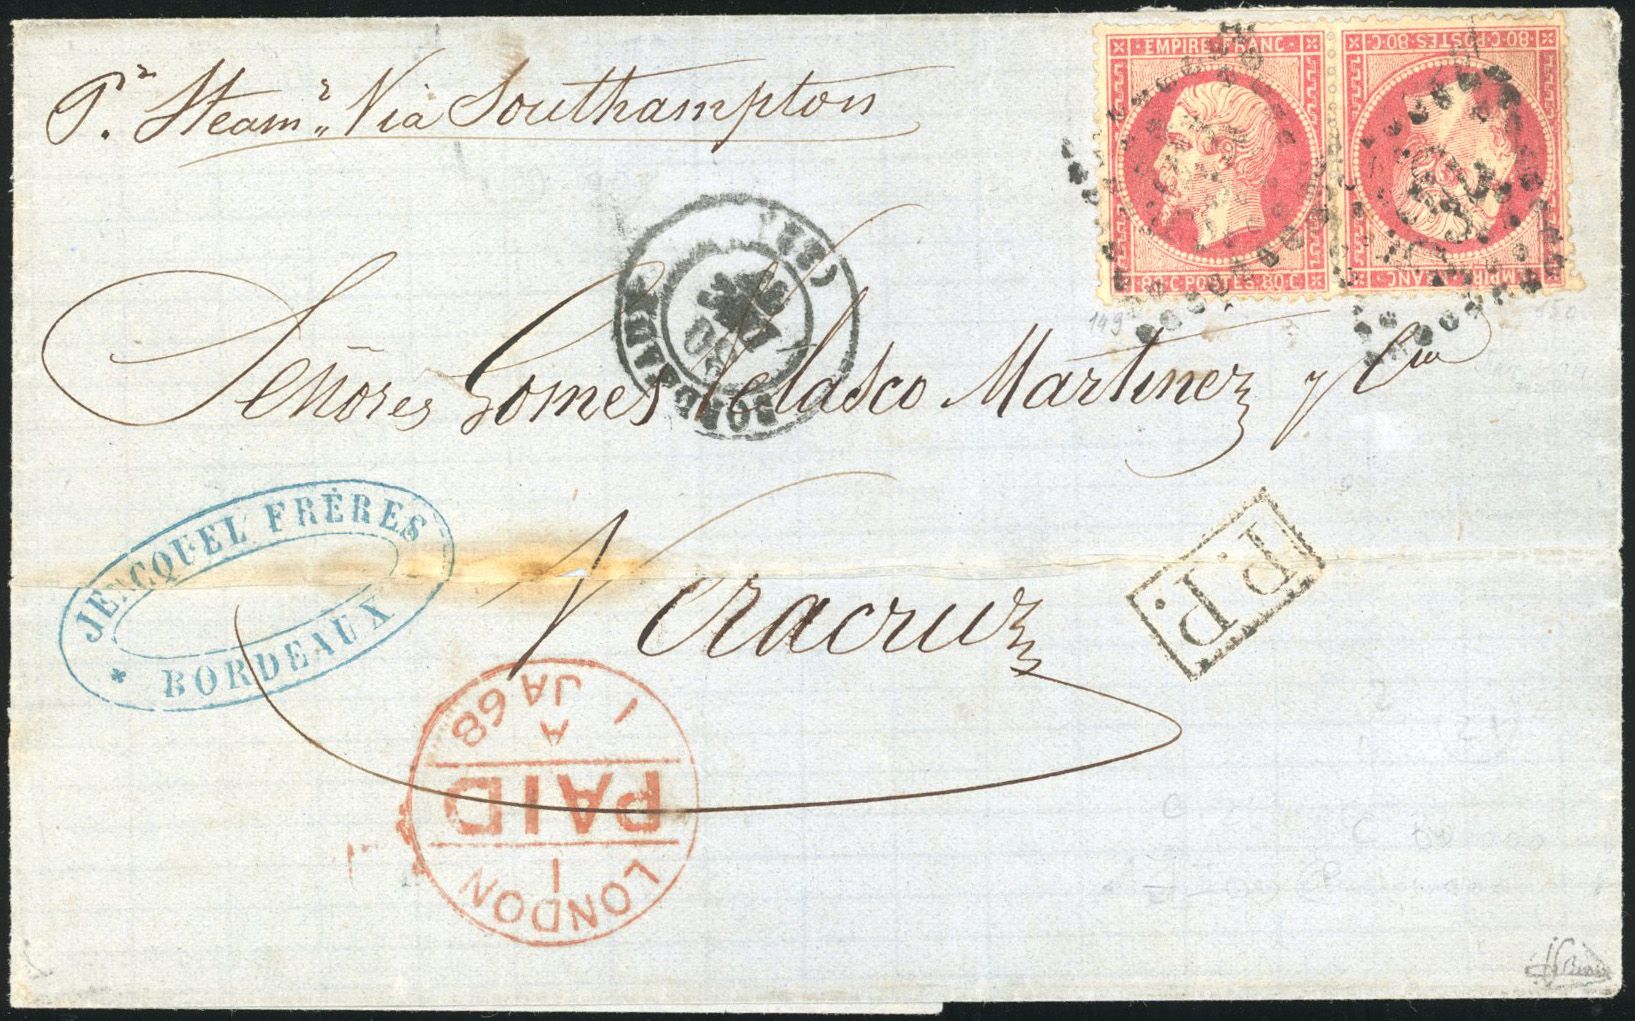 Pr. Steamr. Via Southampton
EMPIRE FRANC
80 · C · POSTES · 80 · C
80 · C · POSTES · 80 · C
149
BORDEAUX (32)
30
Señores Gomes Velasco Martinez y Cia
JENCQUEL FRÈRES
BORDEAUX
Veracruz
P.P.
LONDON
1
PAID
A
1 JA 68